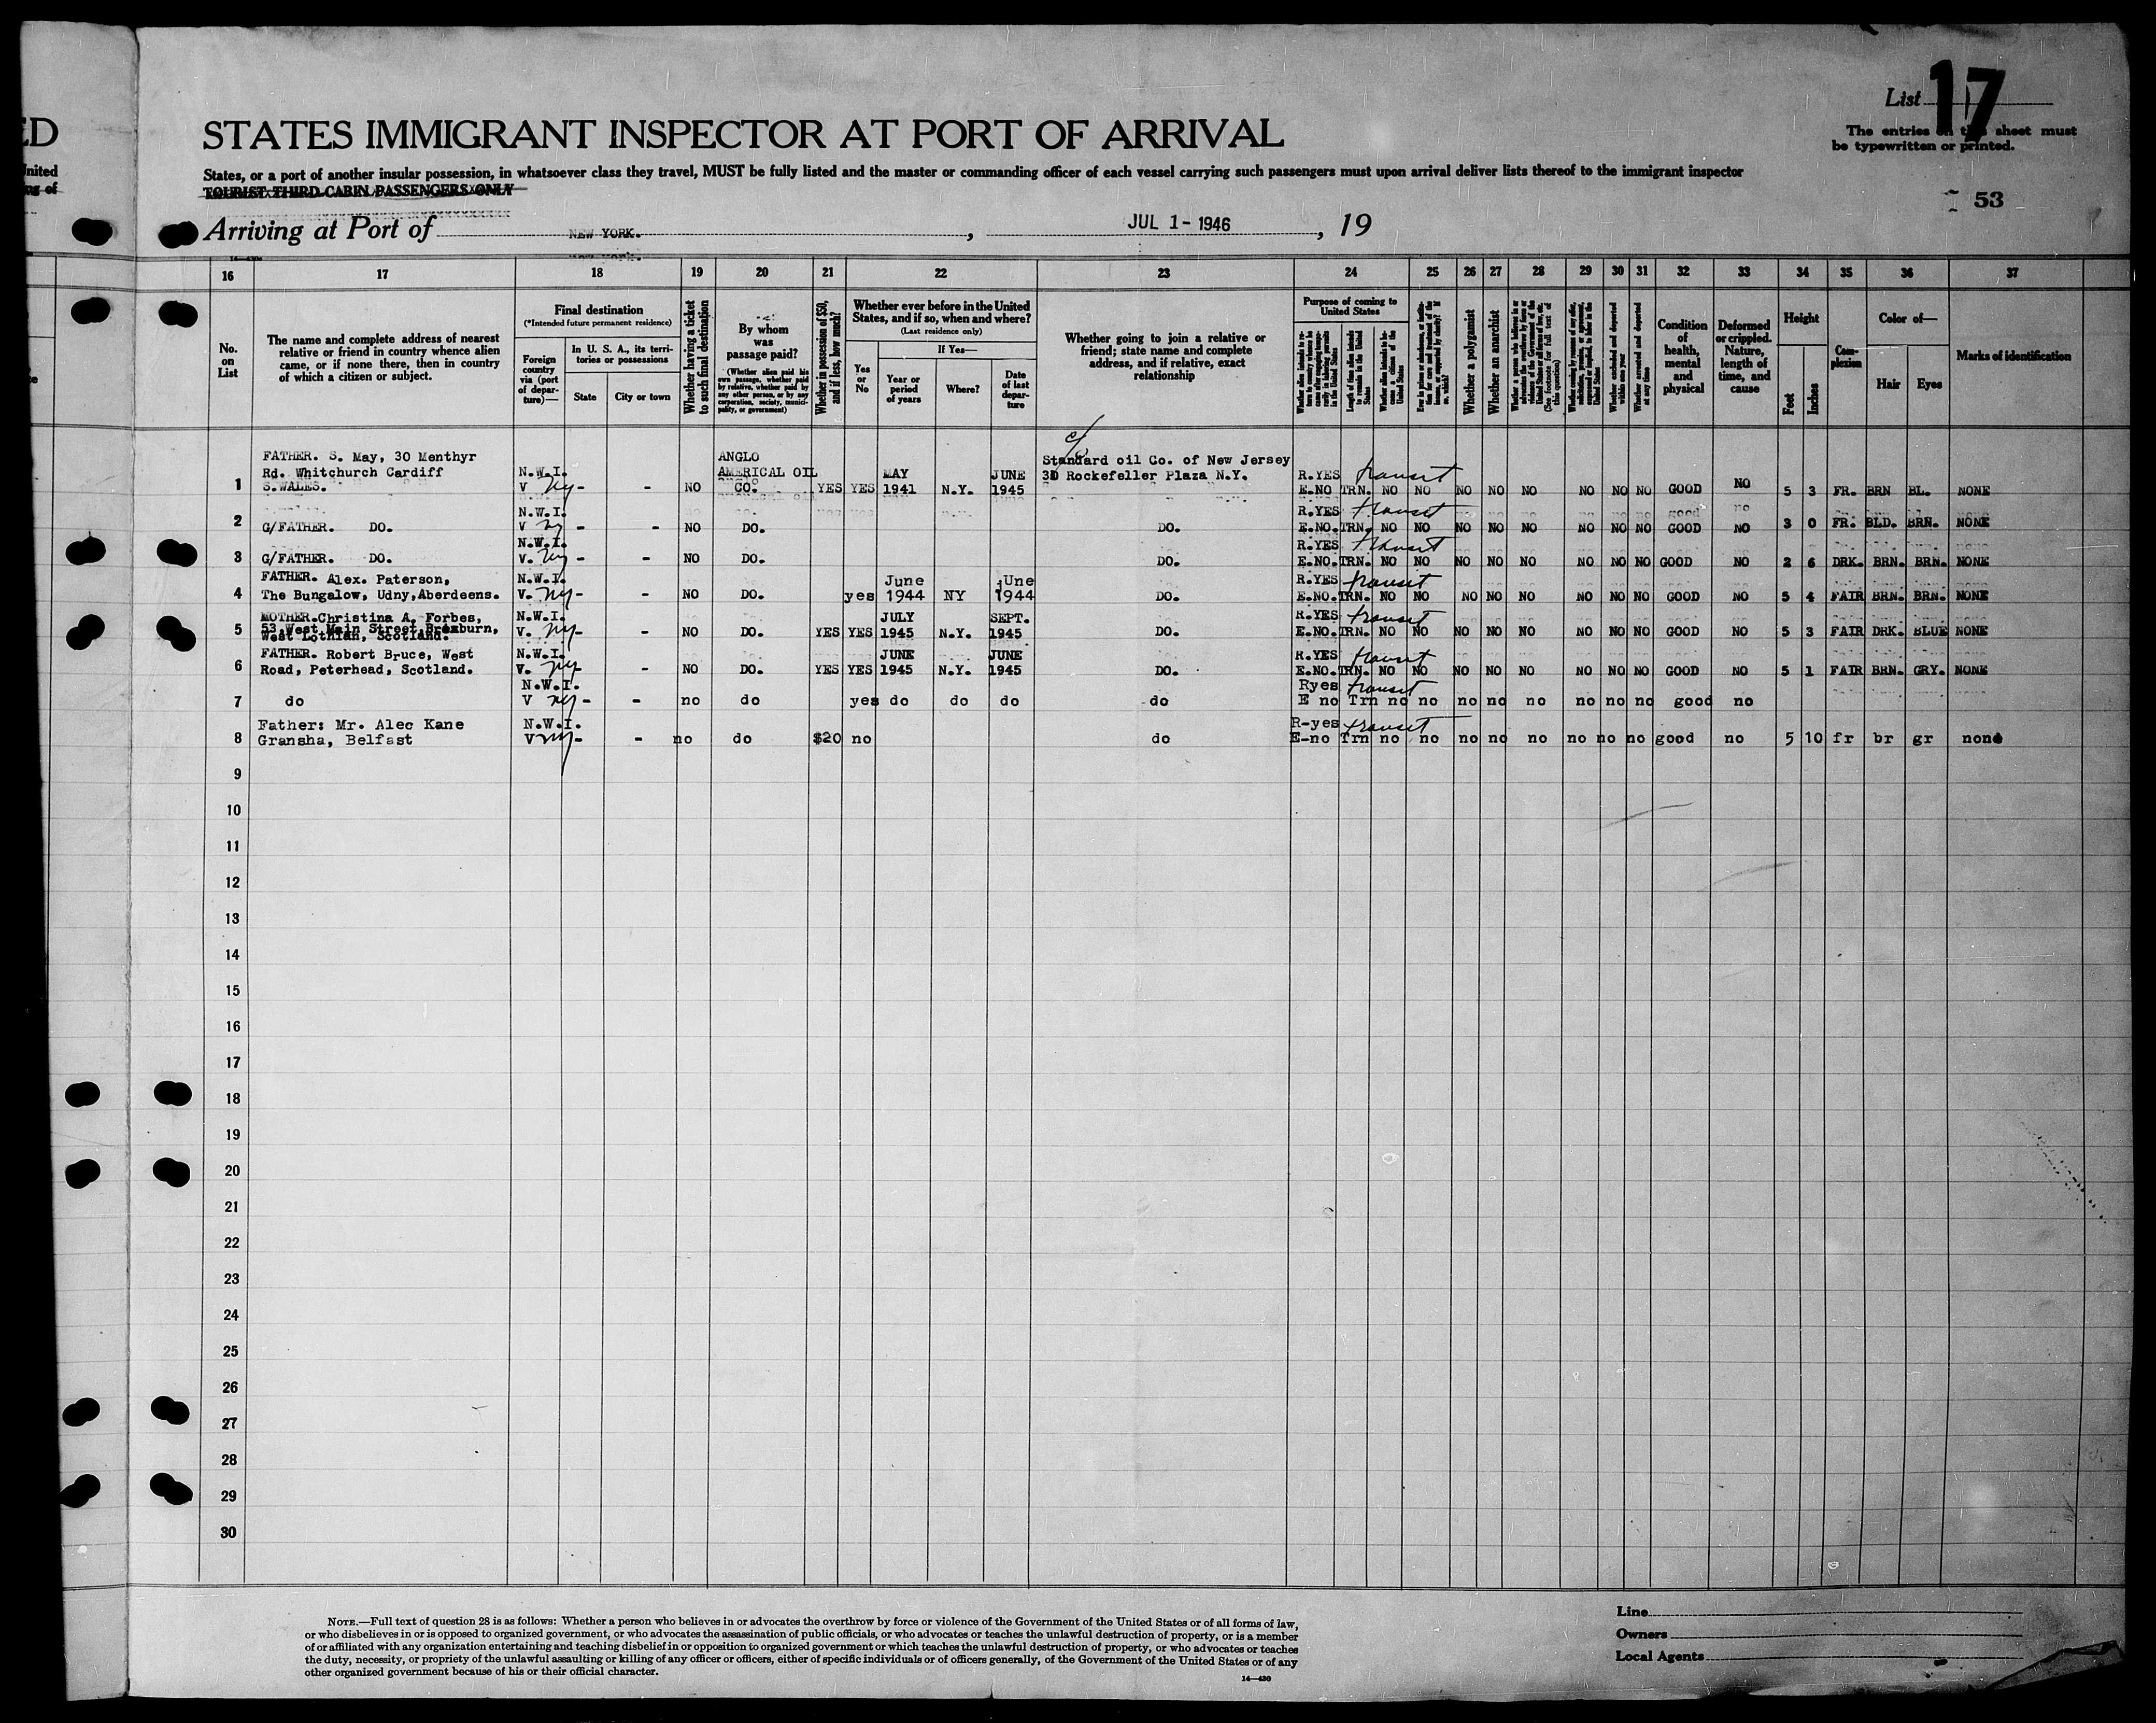 ED
United
ng of
List 17
STATES IMMIGRANT INSPECTOR AT PORT OF ARRIVAL
The entries on this sheet must
be typewritten or printed.
States, or a port of another insular possession, in whatsoever class they travel, MUST be fully listed and the master or commanding officer of each vessel carrying such passengers must upon arrival deliver lists thereof to the immigrant inspector
TOURIST THIRD CABIN PASSENGERS ONLY
53
Arriving at Port of NEW YORK. , JUL 1 - 1946 , 19
16 17 18 19 20 21 22 23 24 25 26 27 28 29 30 31 32 33 34 35 36 37
No.
on
List
The name and complete address of nearest
relative or friend in country whence alien
came, or if none there, then in country
of which a citizen or subject.
Final destination
(*Intended future permanent residence)
Foreign
country
via (port
of depar-
ture)—
In U. S. A., its terri-
tories or possessions
State
City or town
Whether having a ticket
to such final destination
By whom
was
passage paid?
(Whether alien paid his
own passage, whether paid
by relative, whether paid by
any other person, or by any
corporation, society, munici-
pality, or government)
Whether in possession of $50,
and if less, how much?
Whether ever before in the United
States, and if so, when and where?
(Last residence only)
Yes
or
No
If Yes—
Year or
period
of years
Where?
Date
of last
depar-
ture
Whether going to join a relative or
friend; state name and complete
address, and if relative, exact
relationship
Purpose of coming to
United States
Length of time alien intends
to remain in the United
States
Whether alien intends to be-
come a citizen of the
United States
Whether a polygamist
Whether an anarchist
Condition
of
health,
mental
and
physical
Deformed
or crippled.
Nature,
length of
time, and
cause
Height
Feet
Inches
Com-
plexion
Color of—
Hair
Eyes
Marks of identification
c/o
FATHER. S. May, 30 Menthyr ANGLO Standard oil Co. of New Jersey
Rd. Whitchurch Cardiff N.W.I. AMERICAL OIL MAY JUNE 30 Rockefeller Plaza N.Y. R.YES transit
1 S.WALES. V ny - - NO CO. YES YES 1941 N.Y. 1945 E.NO TRN. NO NO NO NO NO NO NO NO GOOD NO 5 3 FR. BRN BL. NONE
N.W.I. R.YES transit
2 G/FATHER. DO. V ny - - NO DO. DO. E.NO. TRN. NO NO NO NO NO NO NO NO GOOD NO 3 0 FR. BLD. BRN. NONE
N.W.I. R.YES transit
3 G/FATHER. DO. V. ny - - NO DO. DO. E.NO. TRN. NO NO NO NO NO NO NO NO GOOD NO 2 6 DRK. BRN. BRN. NONE
FATHER. Alex. Paterson, N.W.I. June June R.YES transit
4 The Bungalow, Udny, Aberdeens. V. ny - - NO DO. yes 1944 NY 1944 DO. E.NO. TRN. NO NO NO NO NO NO NO NO GOOD NO 5 4 FAIR BRN. BRN. NONE
MOTHER.Christina A. Forbes, N.W.I. JULY SEPT. R.YES transit
53 West Main Street Broxburn,
5 West Lothian, Scotland. V. ny - - NO DO. YES YES 1945 N.Y. 1945 DO. E.NO. TRN. NO NO NO NO NO NO NO NO GOOD NO 5 3 FAIR DRK. BLUE NONE
FATHER. Robert Bruce, West N.W.I. JUNE JUNE R.YES transit
6 Road, Peterhead, Scotland. V. ny - NO DO. YES YES 1945 N.Y. 1945 DO. E.NO. TRN. NO NO NO NO NO NO NO NO GOOD NO 5 1 FAIR BRN. GRY. NONE
N.W.I. Ryes transit
7 do V ny - - no do yes do do do do E no Trn no no no no no no no no good no
Father: Mr. Alec Kane N.W.I. R-yes transit
8 Gransha, Belfast V ny - - no do $20 no do E-no Trn no no no no no no no no good no 5 10 fr br gr none
9
10
11
12
13
14
15
16
17
18
19
20
21
22
23
24
25
26
27
28
29
30
NOTE.—Full text of question 28 is as follows: Whether a person who believes in or advocates the overthrow by force or violence of the Government of the United States or of all forms of law,
or who disbelieves in or is opposed to organized government, or who advocates the assassination of public officials, or who advocates or teaches the unlawful destruction of property, or is a member
of or affiliated with any organization entertaining and teaching disbelief in or opposition to organized government or which teaches the unlawful destruction of property, or who advocates or teaches
the duty, necessity, or propriety of the unlawful assaulting or killing of any officer or officers, either of specific individuals or of officers generally, of the Government of the United States or of any
other organized government because of his or their official character.
14—430
Line
Owners
Local Agents